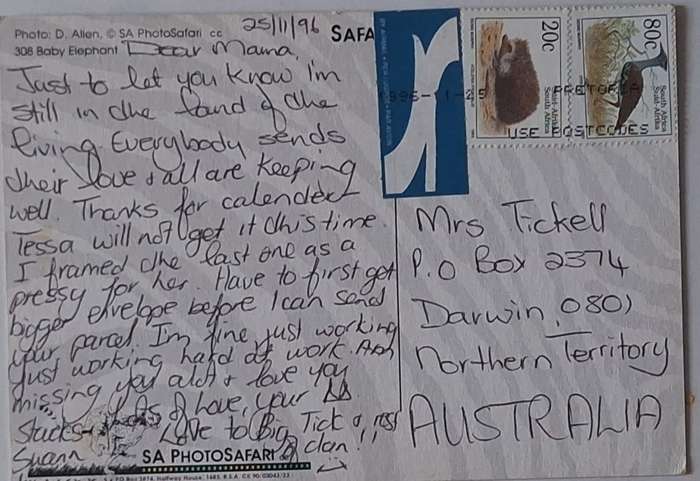 Photo: D. Allen, © SA PhotoSafari cc
308 Baby Elephant
25/11/96
SAFA
Dear Mama,
Just to let you know I'm
still in the land of the
living. Everybody sends
their love & all are keeping
well. Thanks for calender
Tessa will not get it this time.
I framed the last one as a
pressy for her. Have to first get
bigger envelope before I can send
your parcel. I'm fine, just working
just working hard at work.
missing you alot & love you
Stacks of love, your
Love to Big Tick & rest
Swann
clan!!
SA PHOTOSAFARI
20c
South Africa
Suid-Afrika
80c
South Africa
Suid-Afrika
1996-11-25 PRETORIA
USE POSTCODES
Mrs Tickell
P.O Box 2374
Darwin, 0801
Northern Territory
AUSTRALIA